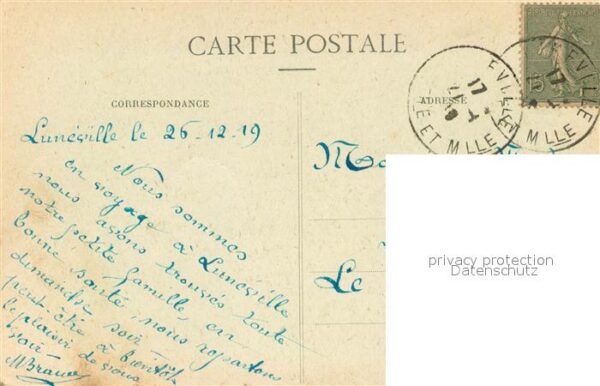 CARTE POSTALE
CORRESPONDANCE
ADRESSE
Lunéville le 26-12-19
Nous sommes
en voyage à Lunéville
nous avons trouvés toute
notre petite famille en
bonne santé, nous repartons
dimanche soir
peut-être à bientôt
le plaisir de vous
voir
Le
privacy protection
Datenschutz
EVILLE
17
ET MLLE
EVILLE
17
ET MLLE